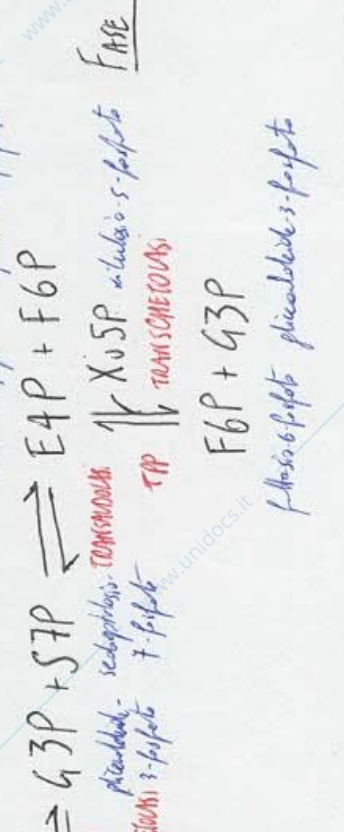 ⇌ G3P + S7P ⇌ E4P + F6P
gliceraldeide-3-fosfato
sedoeptulosio-7-fosfato
TRANSALDOLASI
TPP ⇅ Xu5P xilulosio-5-fosfato
TRANSCHETOLASI
FASE
F6P + G3P
fruttosio-6-fosfato gliceraldeide-3-fosfato
www.unidocs.it